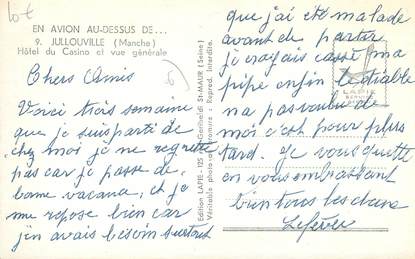 lot
EN AVION AU-DESSUS DE...
9. JULLOUVILLE (Manche)
Hôtel du Casino et vue générale
Chers Amis
Voici trois semaine
que je suis parti de
chez moi je ne regrette
pas car je passe de
bonne vacance, et je
me repose bien car
j'en avais besoin surtout
Edition LAPIE - 125 Garibaldi St-MAUR (Seine)
Véritable photo Reprod. interdite.
LAPIE
que j'ai été malade
avant de partir
je croyais cassé ma
pipe enfin le diable
na pas voulu de
moi c'est pour plus
tard. Je vous quitte
en vous embrassant
bien tous les deux
Lefèvre